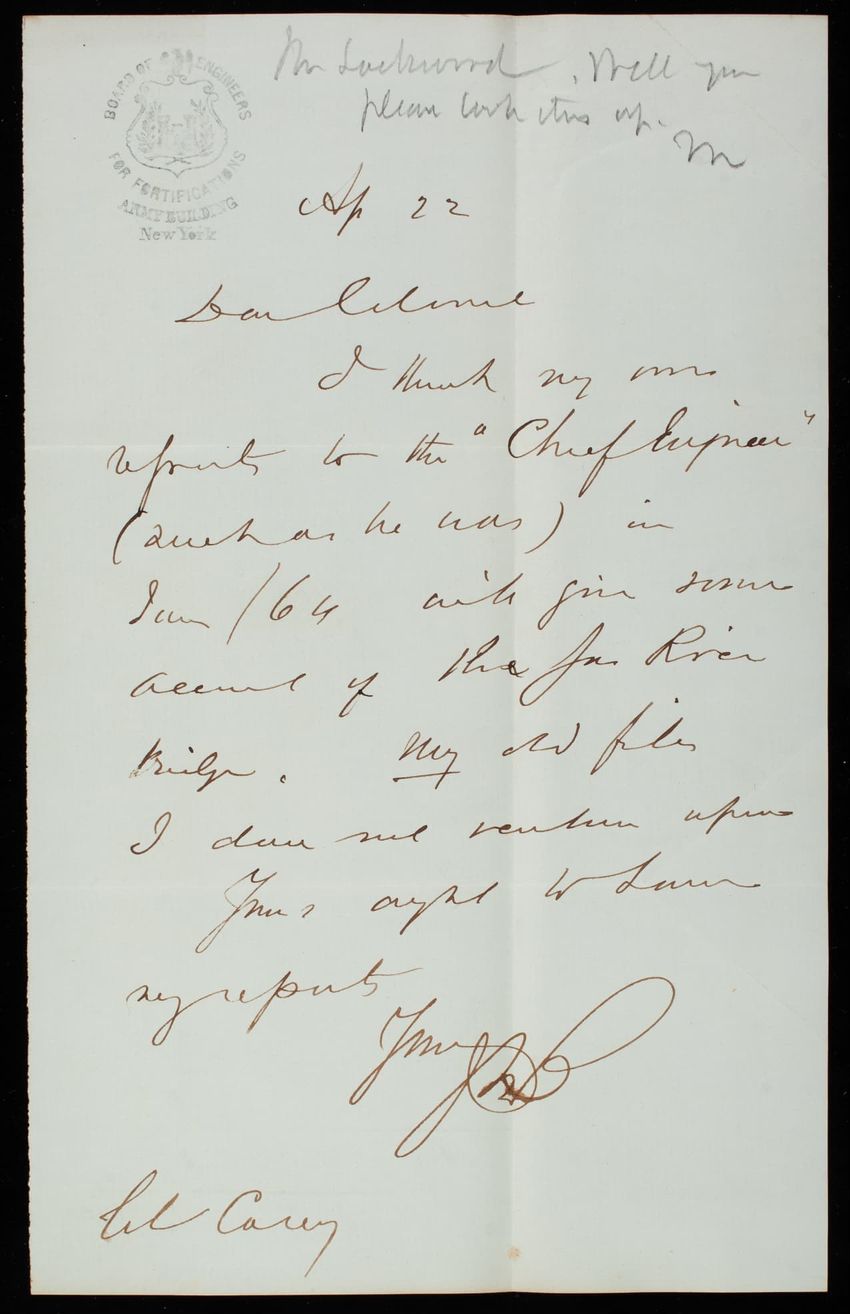 BOARD OF ENGINEERS
FOR FORTIFICATIONS
ARMY BUILDING
New York
Mr Lockwood, Will you
please look this up.
Ap 22
Dear Colonel
I think my own
reports to the "Chief Engineer"
(such as he was) in
June /64 will give some
account of the Jas River
Bridge. My old files
I dare not venture upon
You ought to have
my reports
Yours
Col Casey